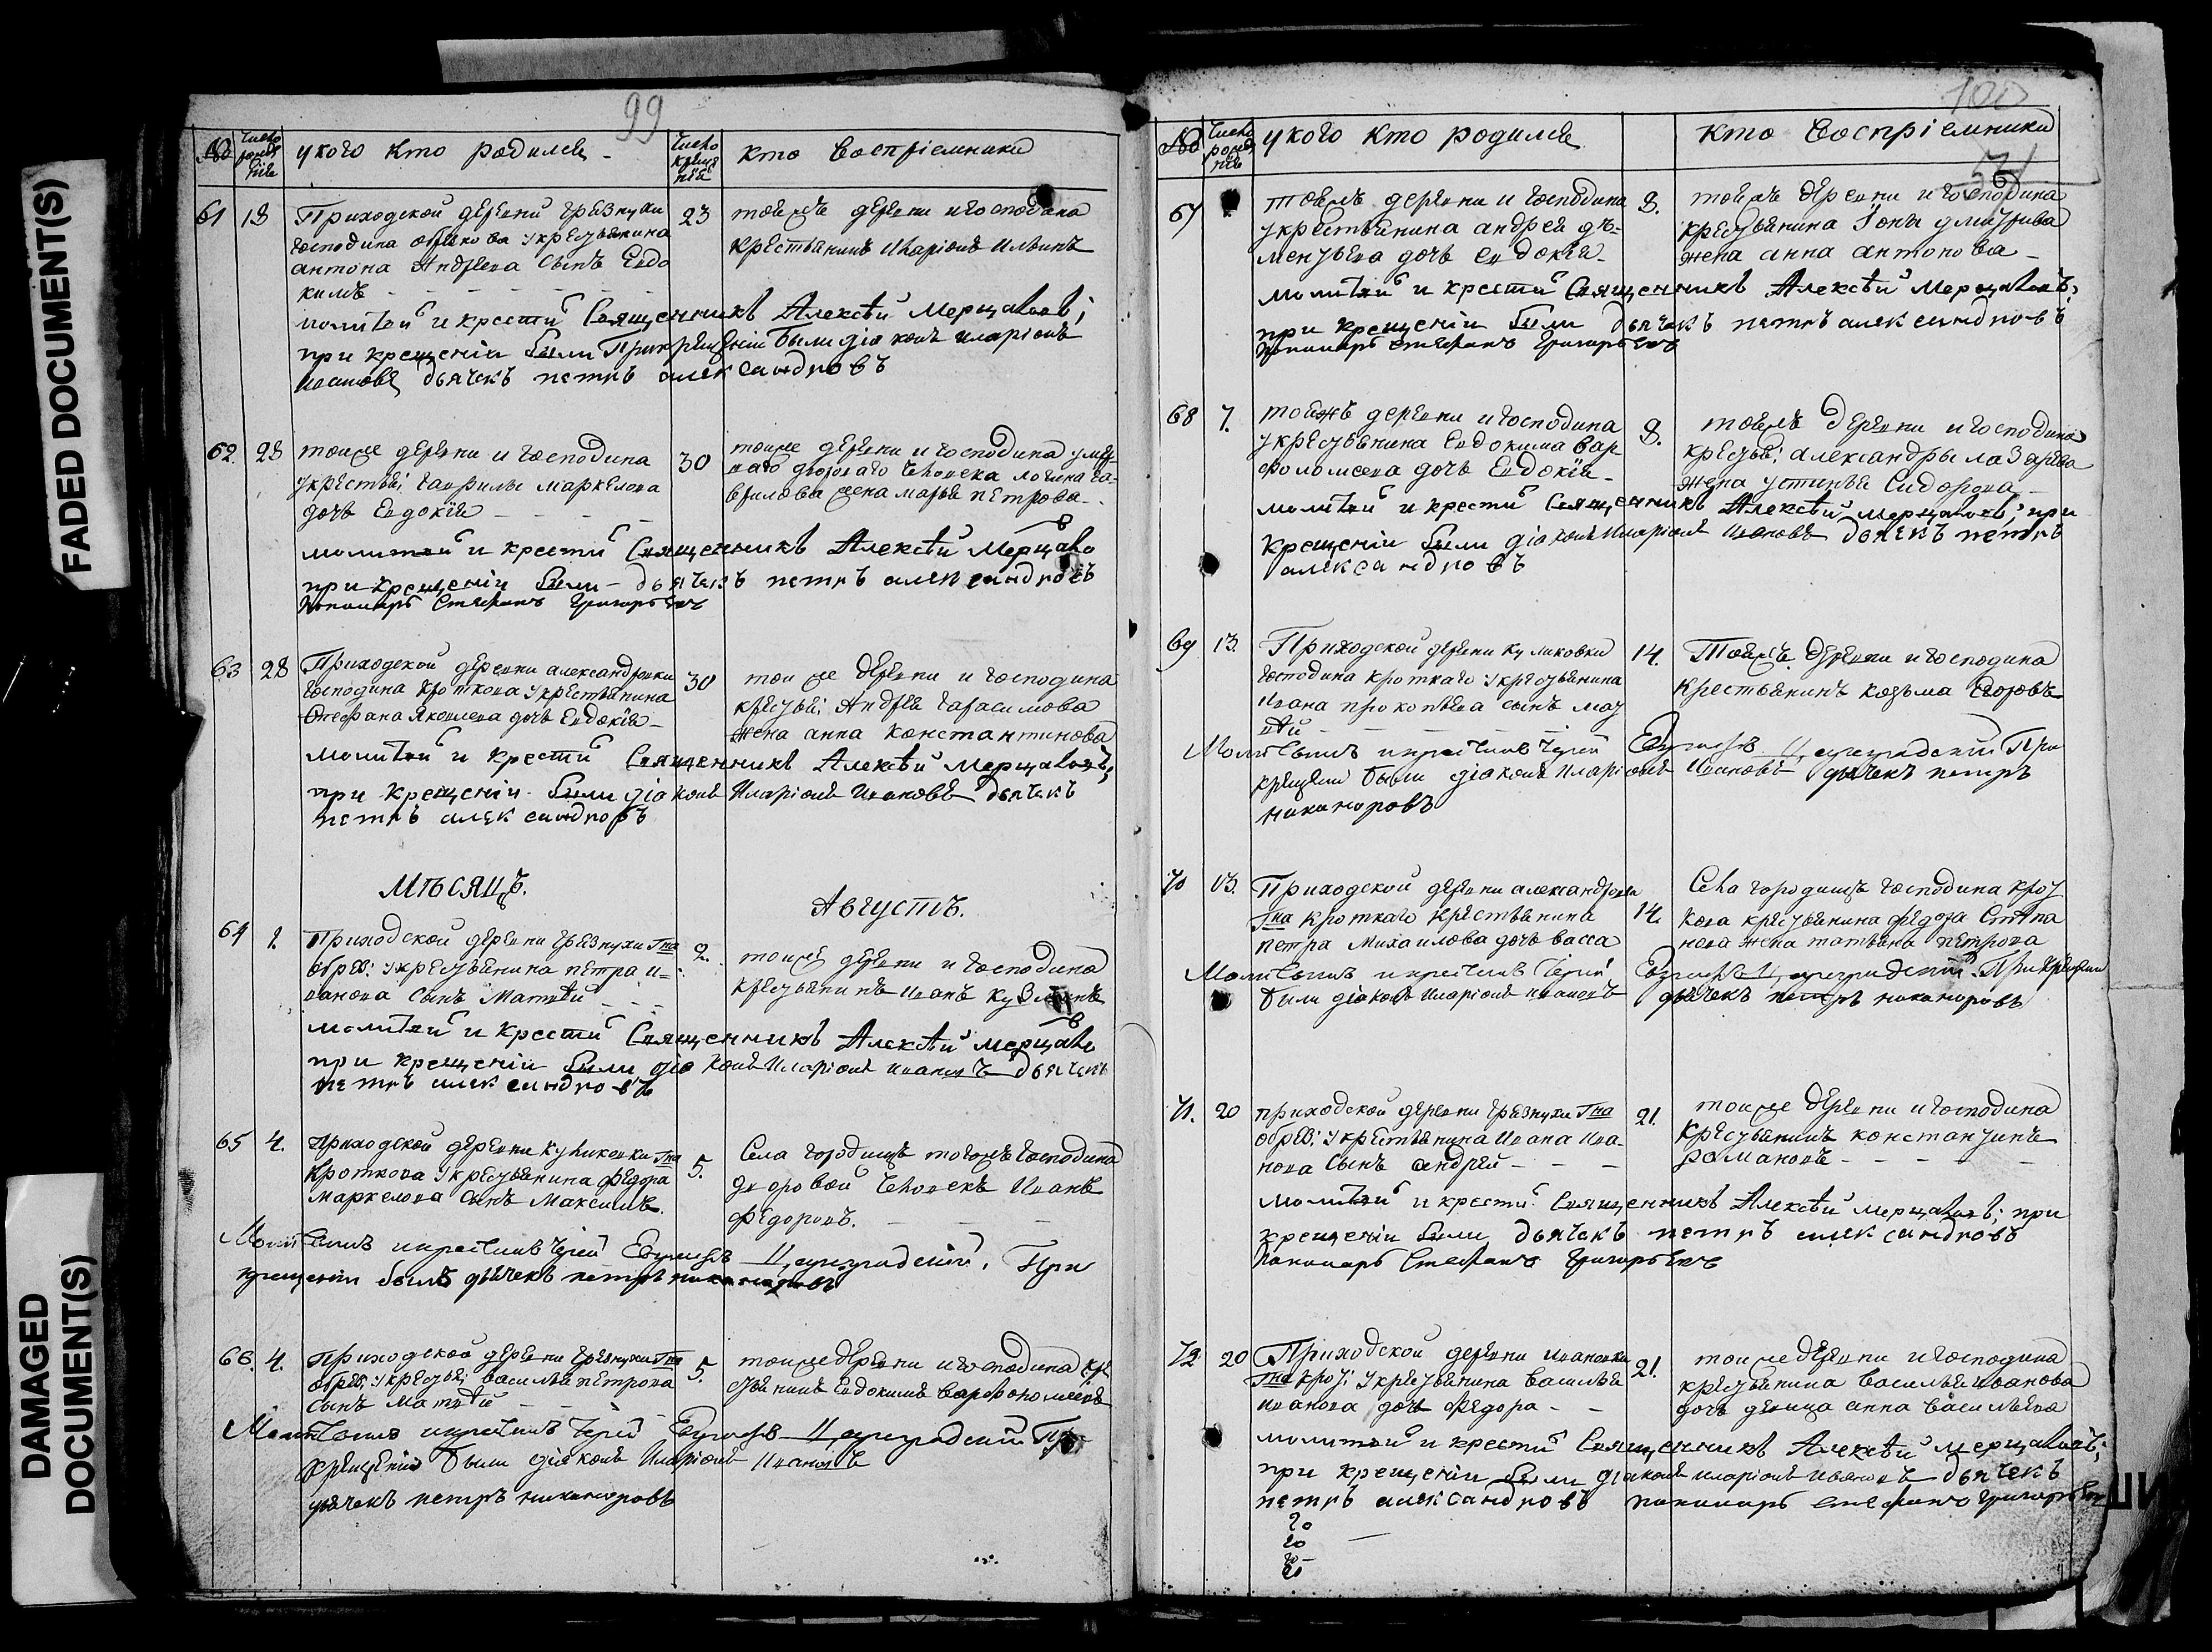 FADED DOCUMENT(S)
DAMAGED DOCUMENT(S)
99
№ Число рожденія у кого кто родился Число крещенія кто воспріемники
61 18 Приходской деревни Грязнухи 23 тоежъ деревни и господина
господина Обрезкова у крестьянина крестьянинъ Иларіонъ Ильинъ
антона Андреева сынъ Евдо
кимъ
молитвой и крестий Священникъ Алексѣй Мерцаловъ;
при крещеніи были При крещеніи были діаконъ иларіонъ
ивановъ дьячекъ петръ александровъ
62. 28 тоиже деревни и господина 30 тоиже деревни и господина умер
у крестья: гаврилы маркелова шаго двороваго человека логина га-
дочь Евдокія врилова жена марья петрова
молитвой и крестий Священникъ Алексѣй Мерцаловъ
при крещеніи были дьячекъ петръ александровъ
Пономарь Стефанъ Григорьевъ
63 28 Приходской деревни александровки 30 тои же деревни и господина
господина Кроткова у крестьянина крестья: Андрея гарасимова
Стефана Яковлева дочь Евдокія жена анна константинова
молитвой и крестий Священникъ Алексѣй Мерцаловъ;
при крещеніи были діаконъ Иларіонъ Ивановъ дьячекъ
петръ александровъ
Мѣсяцъ. Августъ.
64 1. Приходской деревни Грязнухи Гна 2. тоиже деревни и господина
обрез: у крестьянина петра и- крестьянинъ иванъ кузминъ
ванова сынъ Матвѣй
молитвой и крестий Священникъ Алексѣй Мерцаловъ
при крещеніи были діаконъ Иларіонъ ивановъ дьячекъ
петръ александровъ
65 4. Приходской деревни Куликовки Гна 5. Села городищъ тогожъ господина
Кроткова у крестьянина федора дворовой человекъ Иванъ
маркелова сынъ Максимъ. федоровъ.
Молитвилъ и крестилъ Іерей Цареградскій. При
крещеніи былъ дьячекъ петръ никаноровъ
66. 4. Приходской деревни Грязнухи Гна 5. тоиже деревни и господина кре
обрез: у крестья: василья петрова стьянинъ Евдокимъ варфоломеевъ
сынъ Матвѣй
Молитвилъ и крестилъ Іерей Цареградскій При
крещеніи были діаконъ Иларіонъ Ивановъ
дьячекъ петръ никаноровъ
100
51
№ Число рожденія у кого кто родился кто воспріемники
67 тоежъ деревни и господина 8. тоежъ деревни и господина
у крестьянина андрея де- крестьянина Іоны дмитриева
ментьева дочь евдокія жена анна антонова
молитвой и крестий Священникъ Алексѣй Мерцаловъ;
при крещеніи были дьячекъ петръ александровъ
Пономарь стефанъ Григорьевъ
68 7. тоижъ деревни и господина 8. тоежъ деревни и господина
у крестьянина Евдокима вар крестья: александры лазарева
фоломеева дочь Евдокія жена устинья Сидорова
молитвой и крестий Священникъ Алексѣй Мерцаловъ; при
крещеніи были діаконъ Иларіонъ Ивановъ дьячекъ петръ
александровъ
69 13. Приходской деревни Куликовки 14. Тоежъ деревни и господина
господина Кроткаго у крестьянина крестьянинъ козьма Егоровъ
ивана прокопьева сынъ мат
вѣй
Молитвилъ и крестилъ Іерей Цареградскій При
крещеніи были діаконъ Иларіонъ Ивановъ дьячекъ петръ
никаноровъ
70 13. Приходской деревни александровки 14. Села городищъ господина крот
Гна Кроткаго крестьянина кова крестьянина федора Степа
петра михаилова дочь васса нова жена татьяна петрова
Молитвилъ и крестилъ Іерей Цареградскій При крещеніи
были діаконъ Иларіонъ ивановъ дьячекъ петръ никаноровъ
71. 20 приходской деревни Грязнухи Гна 21. тоиже деревни и господина
обрез: у крестьянина Ивана Ива- крестьянинъ константинъ
нова сынъ андрей романовъ
молитвой и крестий Священникъ Алексѣй Мерцаловъ; при
крещеніи были дьячекъ петръ александровъ
Пономарь Стефанъ Григорьевъ
72 20 Приходской деревни Ивановки 21. тоиже деревни и господина
Гна крот: у крестьянина василья крестьянина василья иванова
иванова дочь федора дочь девица анна васильева
молитвой и крестий Священникъ Алексѣй Мерцаловъ;
при крещеніи были діаконъ иларіонъ ивановъ дьячекъ
петръ александровъ пономарь стефанъ Григорьевъ
20
20
20
20